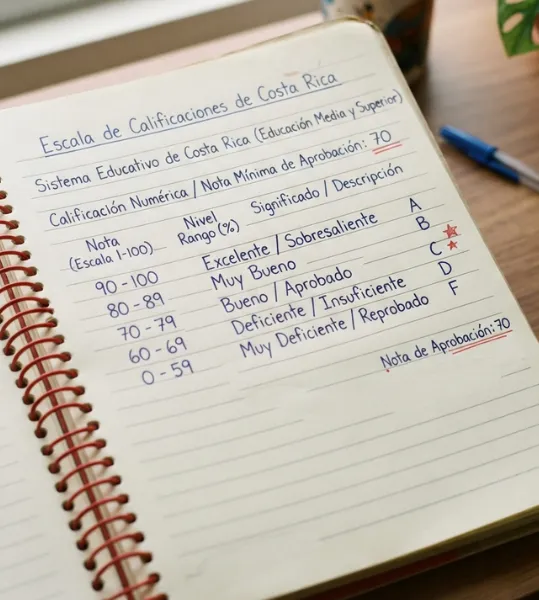 Escala de Calificaciones de Costa Rica
Sistema Educativo de Costa Rica (Educación Media y Superior)
Calificación Numérica / Nota Mínima de Aprobación: 70
Nota (Escala 1-100) Nivel Rango (%) Significado / Descripción
90 - 100 Excelente / Sobresaliente A
80 - 89 Muy Bueno B
70 - 79 Bueno / Aprobado C
60 - 69 Deficiente / Insuficiente D
0 - 59 Muy Deficiente / Reprobado F
Nota de Aprobación: 70